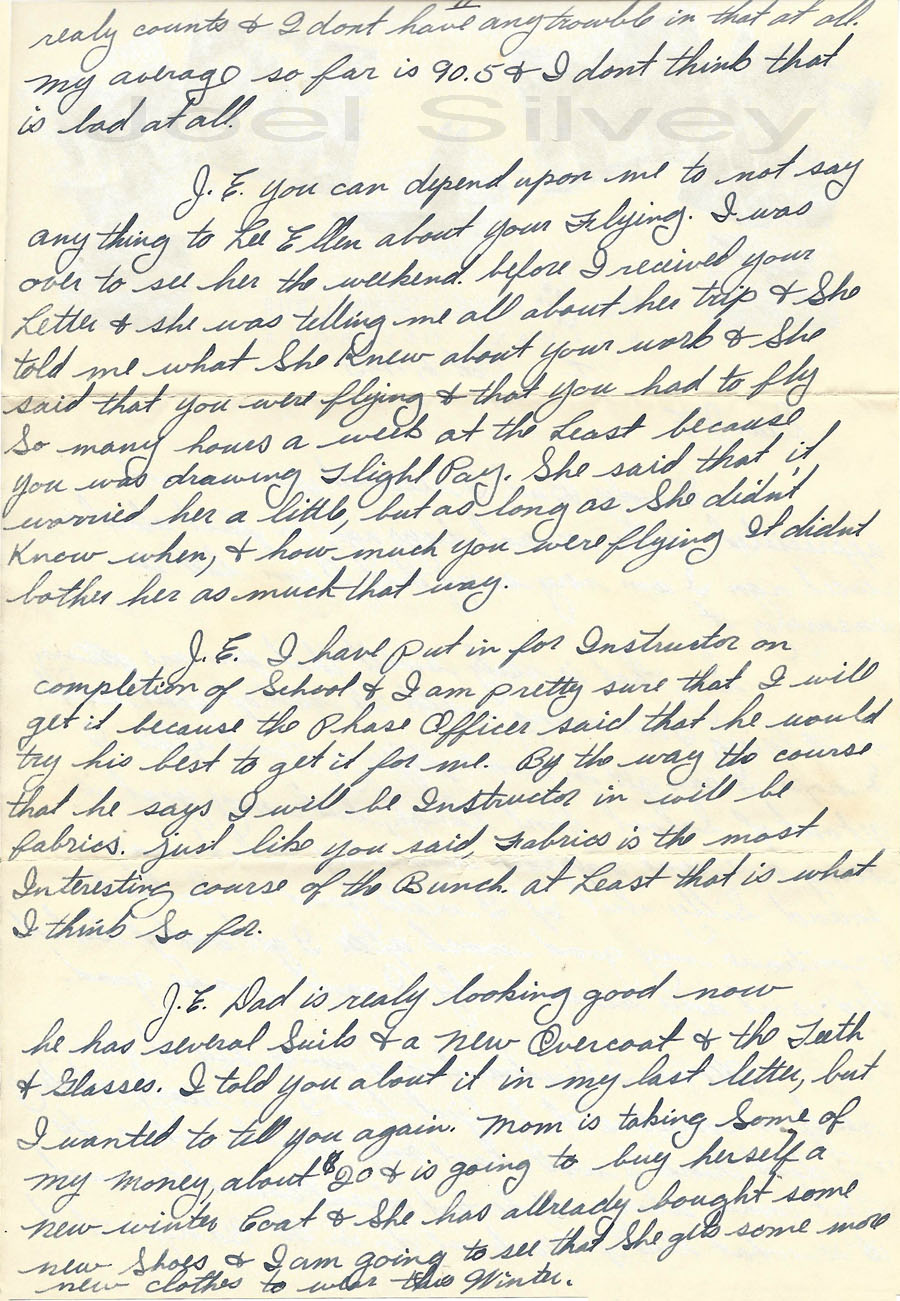 II
realy counts & I dont have any trouble in that at all.
my average so far is 90.5 & I dont think that
is bad at all.
Joel Silvey
J. E. you can depend upon me to not say
any thing to Lee Ellen about your Flying. I was
over to see her the weekend. before I received your
Letter & she was telling me all about her trip & She
told me what She Knew about your work & She
said that you were flying & that you had to fly
So many hours a week at the Least because
you was drawing Flight Pay. She said that it
worried her a little, but as long as She didn't
Know when, & how much you were flying It didnt
bother her as much that way.
J. E. I have put in for Instructor on
completion of School & I am pretty sure that I will
get it because the Phase Officer said that he would
try his best to get it for me. By the way the course
that he says I will be Instructor in will be
fabrics. just like you said, Fabrics is the most
Interesting course of the Bunch. at Least that is what
I think So far.
J. E. Dad is realy looking good now
he has several Suits & a new Overcoat & the Teeth
& Glasses. I told you about it in my last letter, but
I wanted to tell you again. Mom is taking Some of
my money, about $20 & is going to buy herself a
new winter Coat & She has allready bought some
new Shoes & I am going to see that She gets some more
new clothes to wear this Winter.